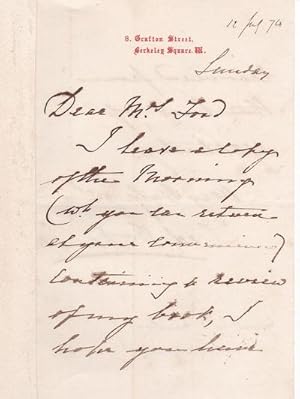 12 July 74
8. Grafton Street.
Berkeley Square. W.
Sunday
Dear Mrs Ford
I leave a copy
of the Morning
(wh you can return
at your convenience)
containing a review
of my book, I
hope you have